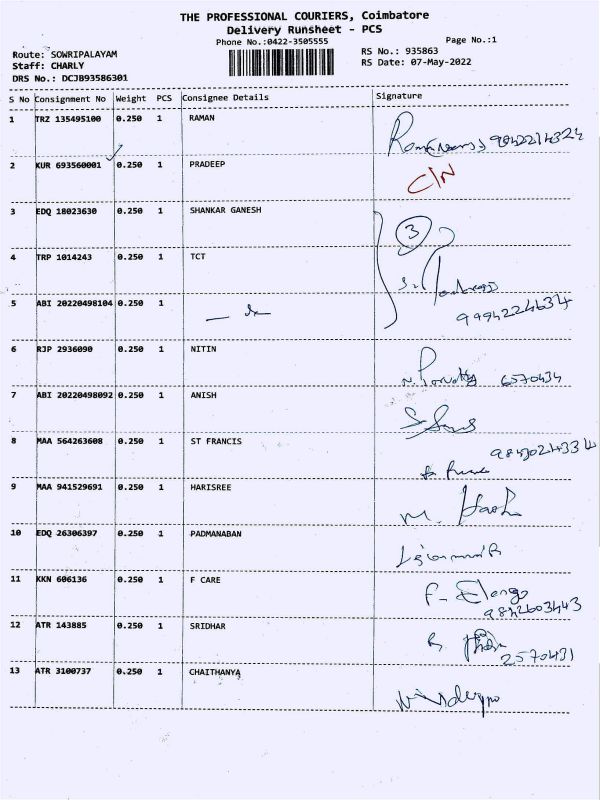 THE PROFESSIONAL COURIERS, Coimbatore
Delivery Runsheet - PCS
Phone No.:0422-3505555
Page No.:1
Route: SOWRIPALAYAM
RS No.: 935863
Staff: CHARLY
RS Date: 07-May-2022
DRS No.: DCJB93586301
S No Consignment No Weight PCS Consignee Details Signature
1 TRZ 135495100 0.250 1 RAMAN
2 KUR 693560001 0.250 1 PRADEEP C/N
3 EDQ 18023630 0.250 1 SHANKAR GANESH 3
4 TRP 1014243 0.250 1 TCT
9994224634
5 ABI 20220498104 0.250 1
6 RJP 2936090 0.250 1 NITIN 6570434
7 ABI 20220498092 0.250 1 ANISH
8 MAA 564263608 0.250 1 ST FRANCIS
9 MAA 941529691 0.250 1 HARISREE
10 EDQ 26306397 0.250 1 PADMANABAN
11 KKN 606136 0.250 1 F CARE F. Elango
9842603443
12 ATR 143885 0.250 1 SRIDHAR
2570431
13 ATR 3100737 0.250 1 CHAITHANYA